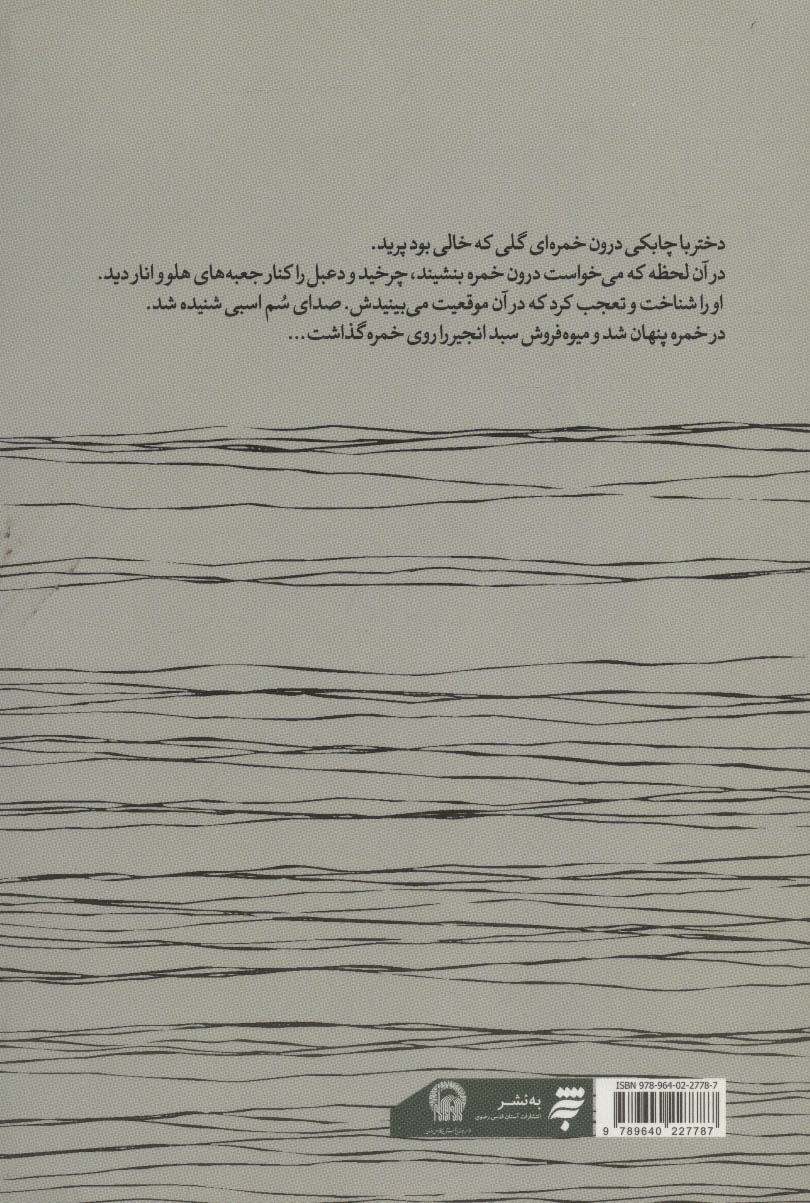 دختر با چابکی درون خمره‌ای گلی که خالی بود پرید.
در آن لحظه که می‌خواست درون خمره بنشیند، چرخید و دعبل را کنار جعبه‌های هلو و انار دید.
او را شناخت و تعجب کرد که در آن موقعیت می‌بینیدش. صدای سُم اسبی شنیده شد.
در خمره پنهان شد و میوه‌فروش سبد انجیر را روی خمره گذاشت...
به‌نشر
انتشارات آستان قدس رضوی
ISBN 978-964-02-2778-7
9 789640 227787